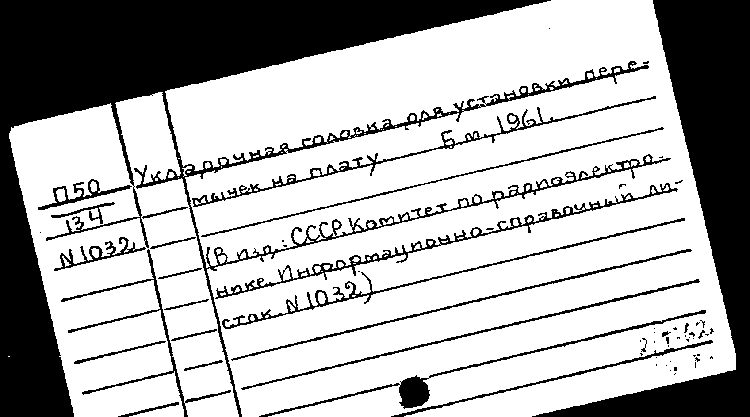 Укладочная головка для установки пере-
мычек на плату. Б.м., 1961.
П50
134
N1032
(В изд.: СССР. Комитет по радиоэлектро-
нике. Информационно-справочный ли-
сток. N1032)